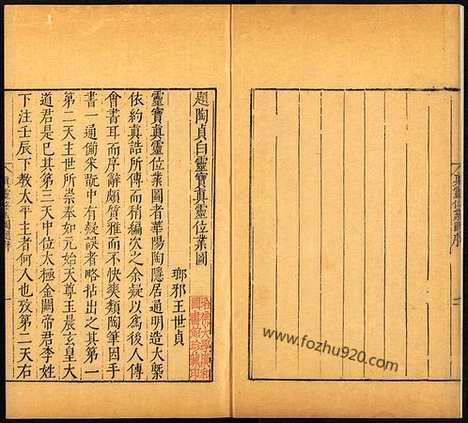 題陶貞白靈寶真靈位業圖
瑯邪王世貞
靈寶真靈位業圖者華陽陶隱居通明造大槩
依約真誥所傳而稍編次之余疑以為後人傳
會書耳而序辭頗質雅而不快爽類陶筆因手
書一通備宋說中有疑誤者略拈出之其第一
第二天主世所崇奉如元始天尊玉晨玄皇大
道君是已其第三天中位太極金闕帝君李姓
下注壬辰下教太平主者何人也攷第二天右
www.fozhu920.com